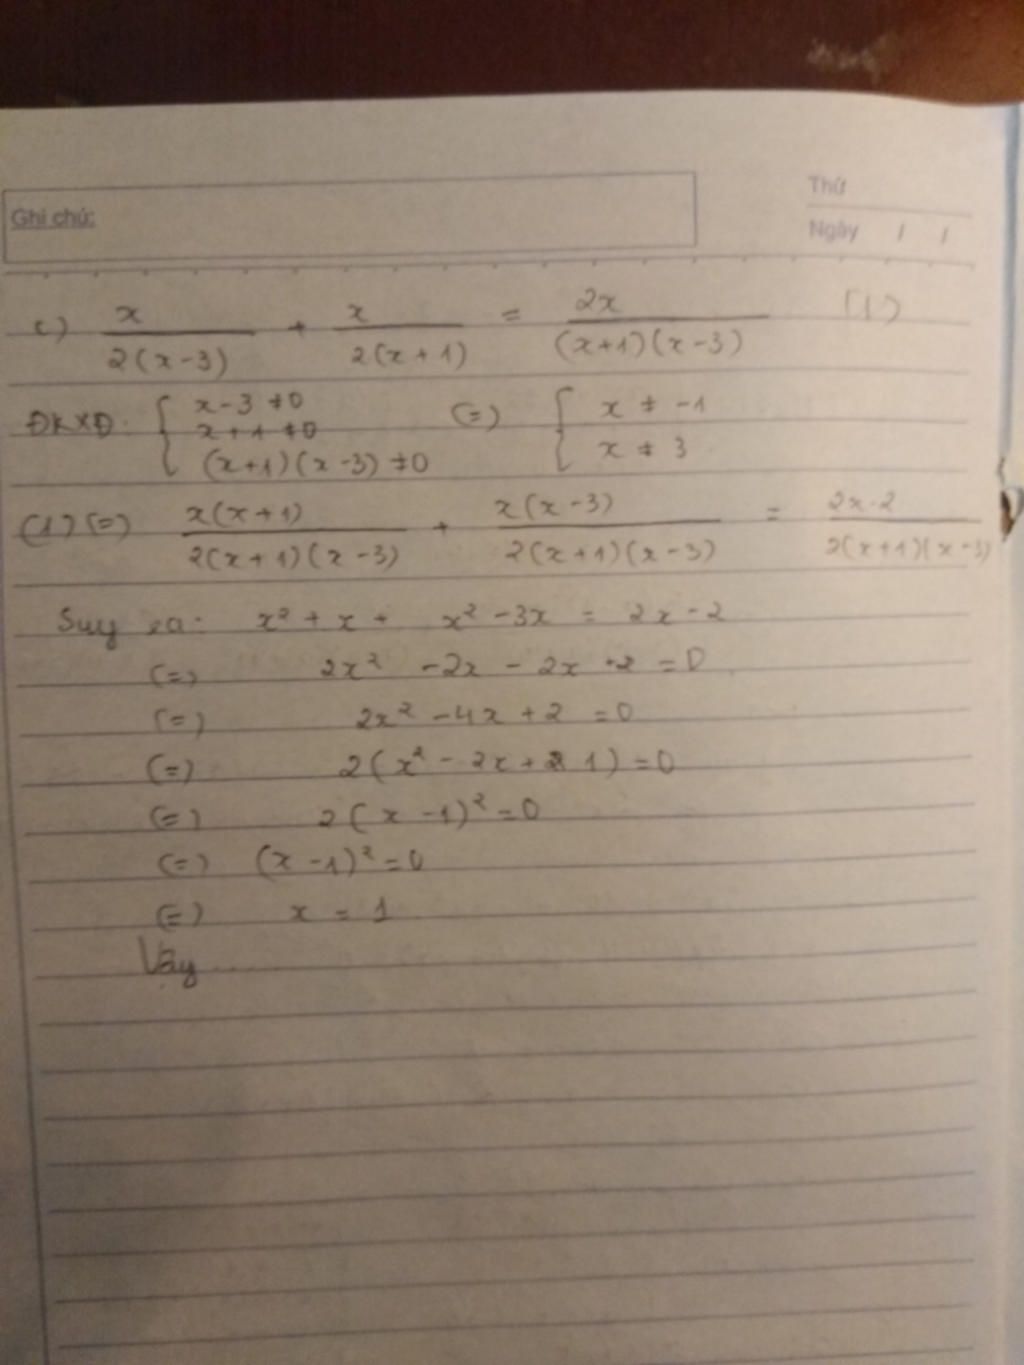 Thứ
Ghi chú:
Ngày / /
c) x/2(x-3) + x/2(x+1) = 2x/(x+1)(x-3) (1)
ĐKXĐ: { x-3 ≠0 x+1 ≠0 (x+1)(x-3) ≠0 (=) { x ≠ -1 x ≠ 3
(1) (=) x(x+1)/2(x+1)(x-3) + x(x-3)/2(x+1)(x-3) = 2x-2/2(x+1)(x-3)
Suy ra: x² + x + x² -3x = 2x - 2
(=) 2x² -2x - 2x +2 = 0
(=) 2x² -4x + 2 = 0
(=) 2(x² - 2x + 1) = 0
(=) 2(x -1)² = 0
(=) (x -1)² = 0
(=) x = 1
Vậy .....